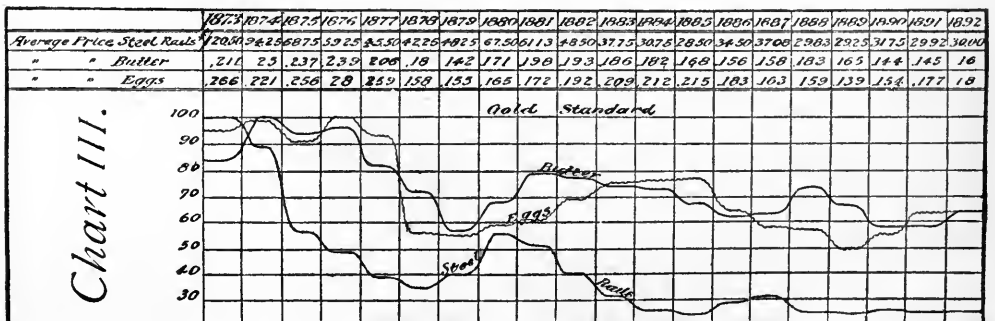 1873 1874 1875 1876 1877 1878 1879 1880 1881 1882 1883 1884 1885 1886 1887 1888 1889 1890 1891 1892
Average Price Steel Rails 120.50 94.25 68.75 59.25 45.50 42.25 48.25 67.50 61.13 48.50 37.75 30.75 28.50 34.50 37.08 29.83 29.25 31.75 29.92 30.00
" " Butter .211 25 .237 .239 .206 .18 .142 .171 .198 .193 .186 .182 .168 .156 .158 .183 .165 .144 .145 16
" " Eggs .266 .221 .256 28 .259 .158 .155 .165 .172 .192 .209 .212 .215 .183 .163 .159 .139 .154 .177 18
Gold Standard
Chart III.
100
90
80
70
60
50
40
30
Butter
Eggs
Steel
Rails